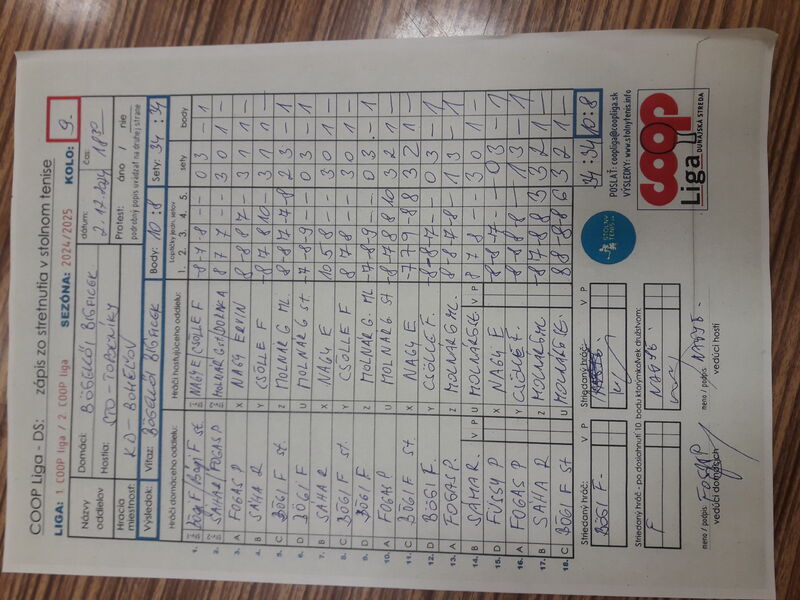 COOP Liga - DS: zápis zo stretnutia v stolnom tenise
LIGA: 1. COOP liga / 2. COOP liga SEZÓNA: 2024/2025 KOLO: 9.
Názvy oddielov
Domáci: BÖGELLÖI BIGFICEK
Hostia: STO - TOPOĽNÍKY
dátum: 2.12.2024
čas: 18 30
Hracia miestnosť: KD - BOHEĽOV
Protest: áno / nie
podrobný popis uvádzať na druhej strane
Výsledok: Víťaz: BÖGELLÖI BIGFICEK Body: 10 : 8 Sety: 34 : 34
Hráči domáceho oddielu: Hráči hosťujúceho oddielu: Loptičky jedn. setov sety body
1. 2. 3. 4. 5.
1. BÖGI F / BÖGI F st. NAGY E CSÖLLE F 0 3 - 1
2. SAHA R / FOGAS P 8 7 7 - - 3 0 1 -
3. A FOGAS P X NAGY ERVIN 8 -8 8 7 - 3 1 1 -
4. B SAHA R Y CSÖLLE F -8 7 8 10 - 3 1 1 -
5. C BÖGI F st. Z MOLNÁR G. ML 8 -8 7 -7 -8 2 3 - 1
6. D BÖGI F U MOLNÁR G st. -7 -8 -9 - - 0 3 - 1
7. B SAHA R X NAGY E 10 5 8 - - 3 0 1 -
8. C BÖGI F st. Y CSÖLLE F 8 7 8 - - 3 0 1 -
9. D BÖGI F Z MOLNÁR G. ML -7 -8 -9 - - 0 3 - 1
10. A FOGAS P U MOLNÁR G st 3 2 1 -
11. C BÖGI F st X NAGY E. 3 2 1 -
12. D BÖGI F. Y CSÖLLE F. -8 -8 -7 - - 0 3 - 1
13. A FOGAS P. Z MOLNÁR G ML. 1 3 - 1
14. B SAHA R. V P U MOLNÁR G st. V P 8 7 8 - - 3 0 1 -
15. D FÜKSY P X NAGY E -8 -8 -7 - - 0 3 - 1
16. A FOGAS P Y CSÖLLE F. 1 3 - 1
17. B SAHA R Z MOLNÁR G ML. -8 7 -8 8 3 3 2 1 -
18. C BÖGI F st U MOLNÁR G st. 8 8 -8 -8 6 3 2 1 -
34 : 34 10 : 8
Striedaný hráč: V P Striedaný hráč: V P
BÖGI F.
Striedaný hráč - po dosiahnutí 10. bodu ktorýmkoľvek družstvom:
F NAGY E.
STOLNÝ TENIS
POSLAŤ: coopliga@coopliga.sk
VÝSLEDKY: www.stolnytenis.info
coop
Liga DUNAJSKÁ STREDA
meno / podpis FOGAS P meno / podpis NAGY E.
vedúci domácich vedúci hostí